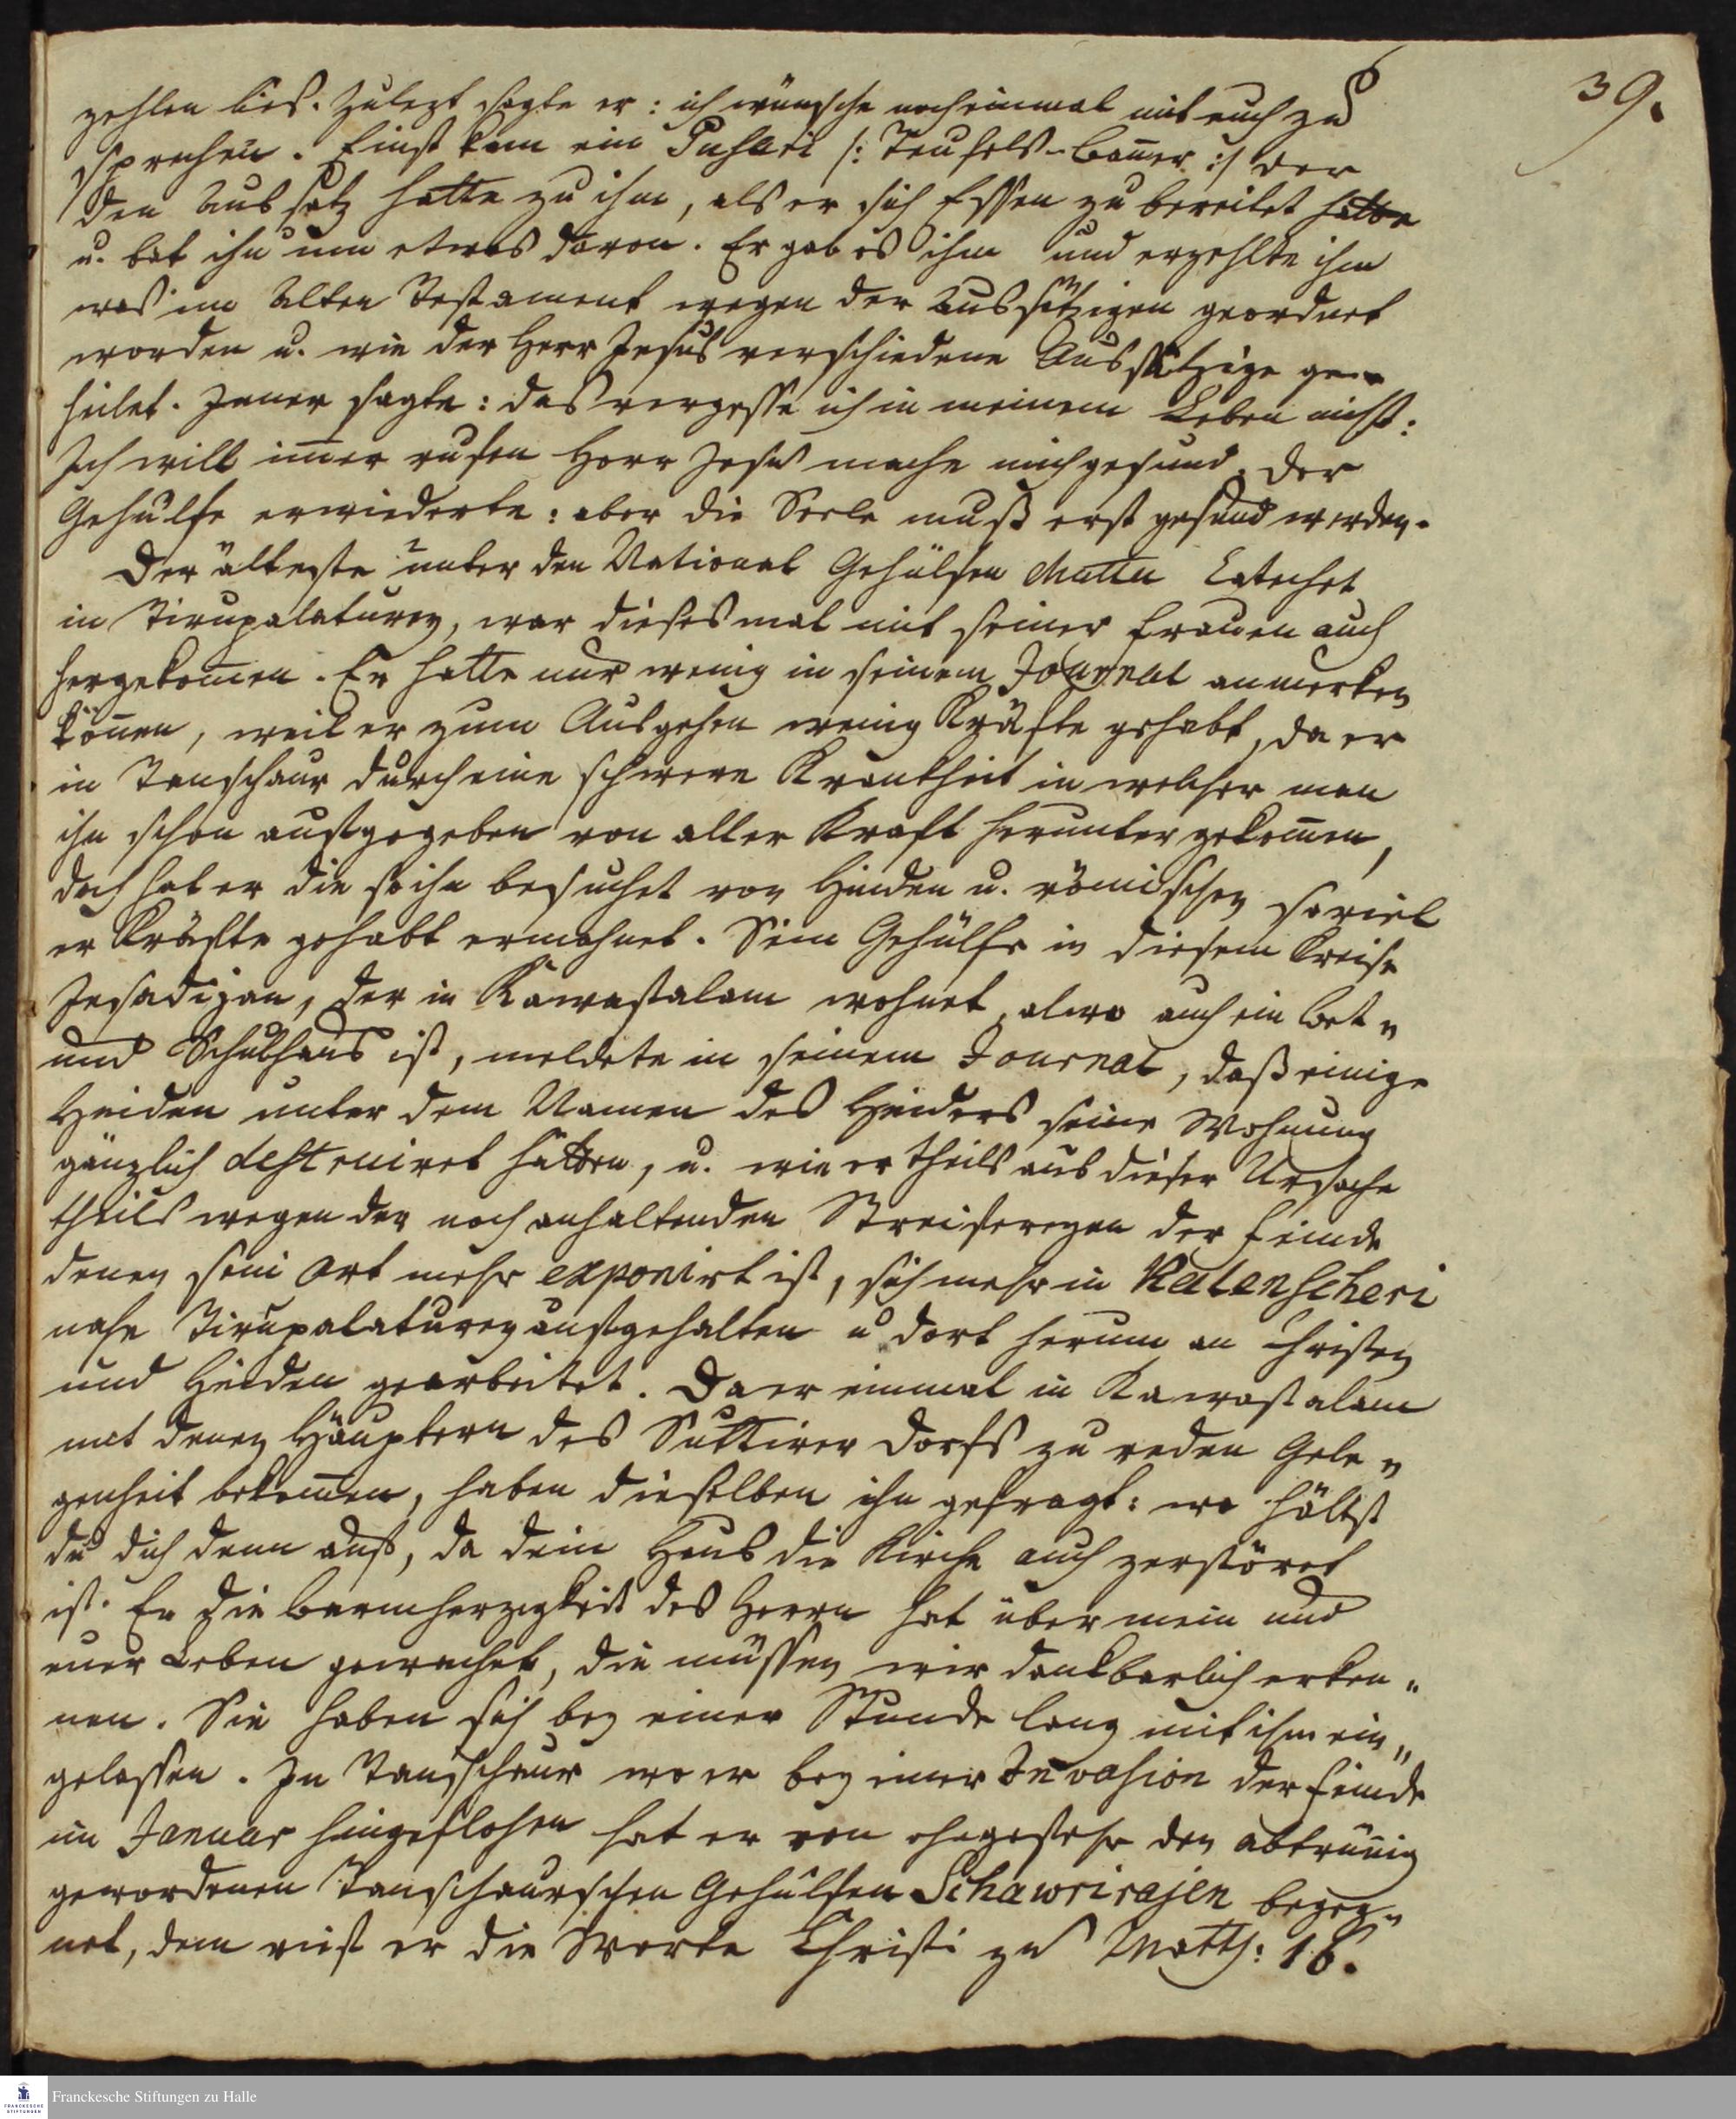 39.
zehlen lies. Zulezt sagte er: ich wünsche noch einmal mit euch zu
sprechen. Einst kam ein Puhari /: Teufels-baner :/ der
den Aussatz hatte zu ihm, als er sich Essen zu bereitet hatte
u. bat ihn um etwas davon. Er gab es ihm und erzehlte ihm
was im Alten Testament wegen der Aussätzigen geordnet
worden u. wie der Herr Jesus verschiedene Aussätzige ge=
heilet. Jener sagte: das vergesse ich in meinem Leben nicht:
Ich will imer rufen Herr Jesus mache mich gesund. Der
Gehülfe erwiederte: aber die Seele muß erst gesund werden.
Der älteste unter den National Gehülfen Muttu Catechet
in Tirupalaturey, war dieses mal mit seiner Frauen auch
hergekomen. Er hatte nur wenig in seinem Journal anmerken
könen, weil er zum Ausgehen wenig Kräfte gehabt, da er
in Tanschaur durch eine schwere Krankheit in welcher man
ihn schon aufgegeben von aller Kraft herunter gekomen,
doch hat er die so ihn besuchet von Heiden u. römischen soviel
er Kräfte gehabt ermahnet. Sein Gehülfe in diesem Kreise
Jesadian, der in Kawastalam wohnet, alwo auch ein Bet=
und Schulhaus ist, meldete in seinem Journal, daß einige
Heiden unter dem Namen des Heiders seine Wohnung
gänzlich destruiret hätten, u. wie er theils aus dieser Ursache
theils wegen der noch anhaltenden Streifereyen der Feinde
denen sein Ort mehr exponirt ist, sich mehr in Katenscheri
nahe Tirupalaturey aufgehalten u dort herum an Christen
und Heiden gearbeitet. Da er einmal in Kawastalam
mit denen Häuptern des Suttirer Dorfs zu reden Gele=
genheit bekomen, haben dieselben ihn gefragt: wo hältst
du dich denn auf, da dein Haus die Kirche auch zerstöret
ist. Er die Barmherzigkeit des Herrn hat über mein und
euer Leben gewachet, die müssen wir dankbarlich erken=
nen. Sie haben sich bey einer Stunde lang mit ihm ein=
gelassen. In Tanschaur wo er bey einer Invasion der Feinde
im Januar hingeflohen hat er von ohngefehr den abtrünig
gewordenen Tanschaurschen Gehülfen Schawrirajen begeg=
net, dem rief er die Worte Christi zu Matth: 16.
Franckesche Stiftungen zu Halle
FRANCKESCHE
STIFTUNGEN